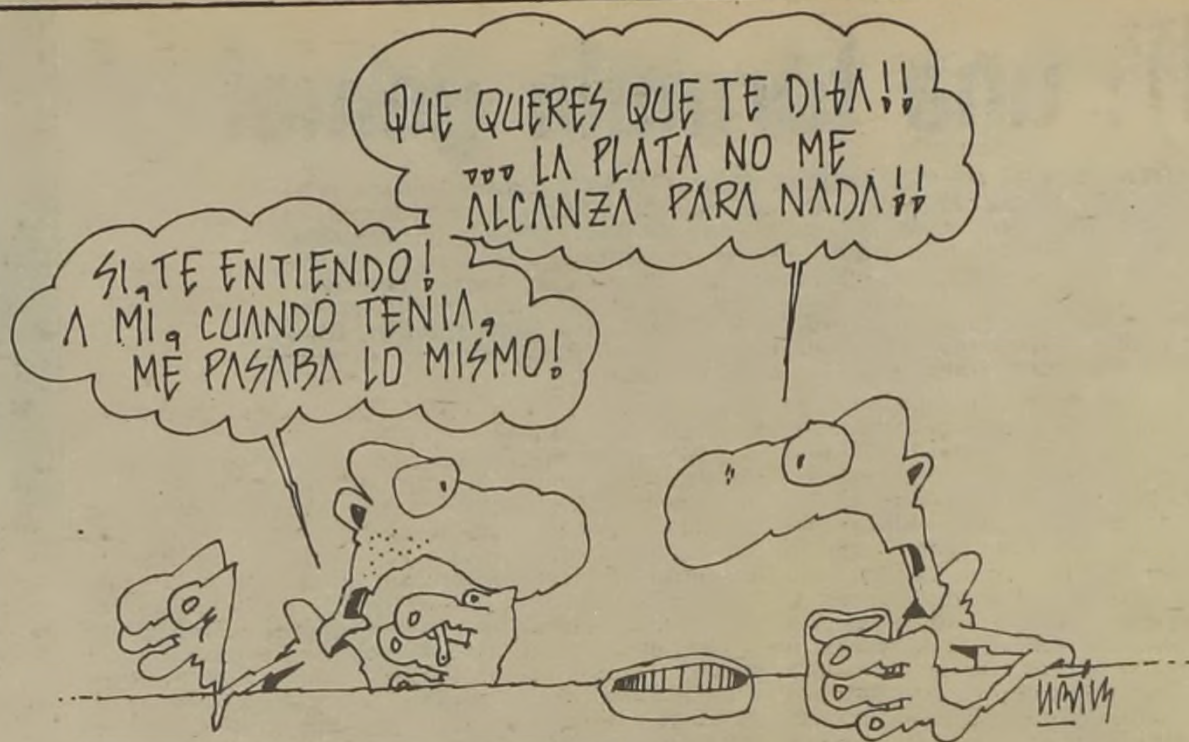 QUE QUERES QUE TE DIGA!!
... LA PLATA NO ME
ALCANZA PARA NADA!!
SI, TE ENTIENDO!
A MI, CUANDO TENIA,
ME PASABA LO MISMO!